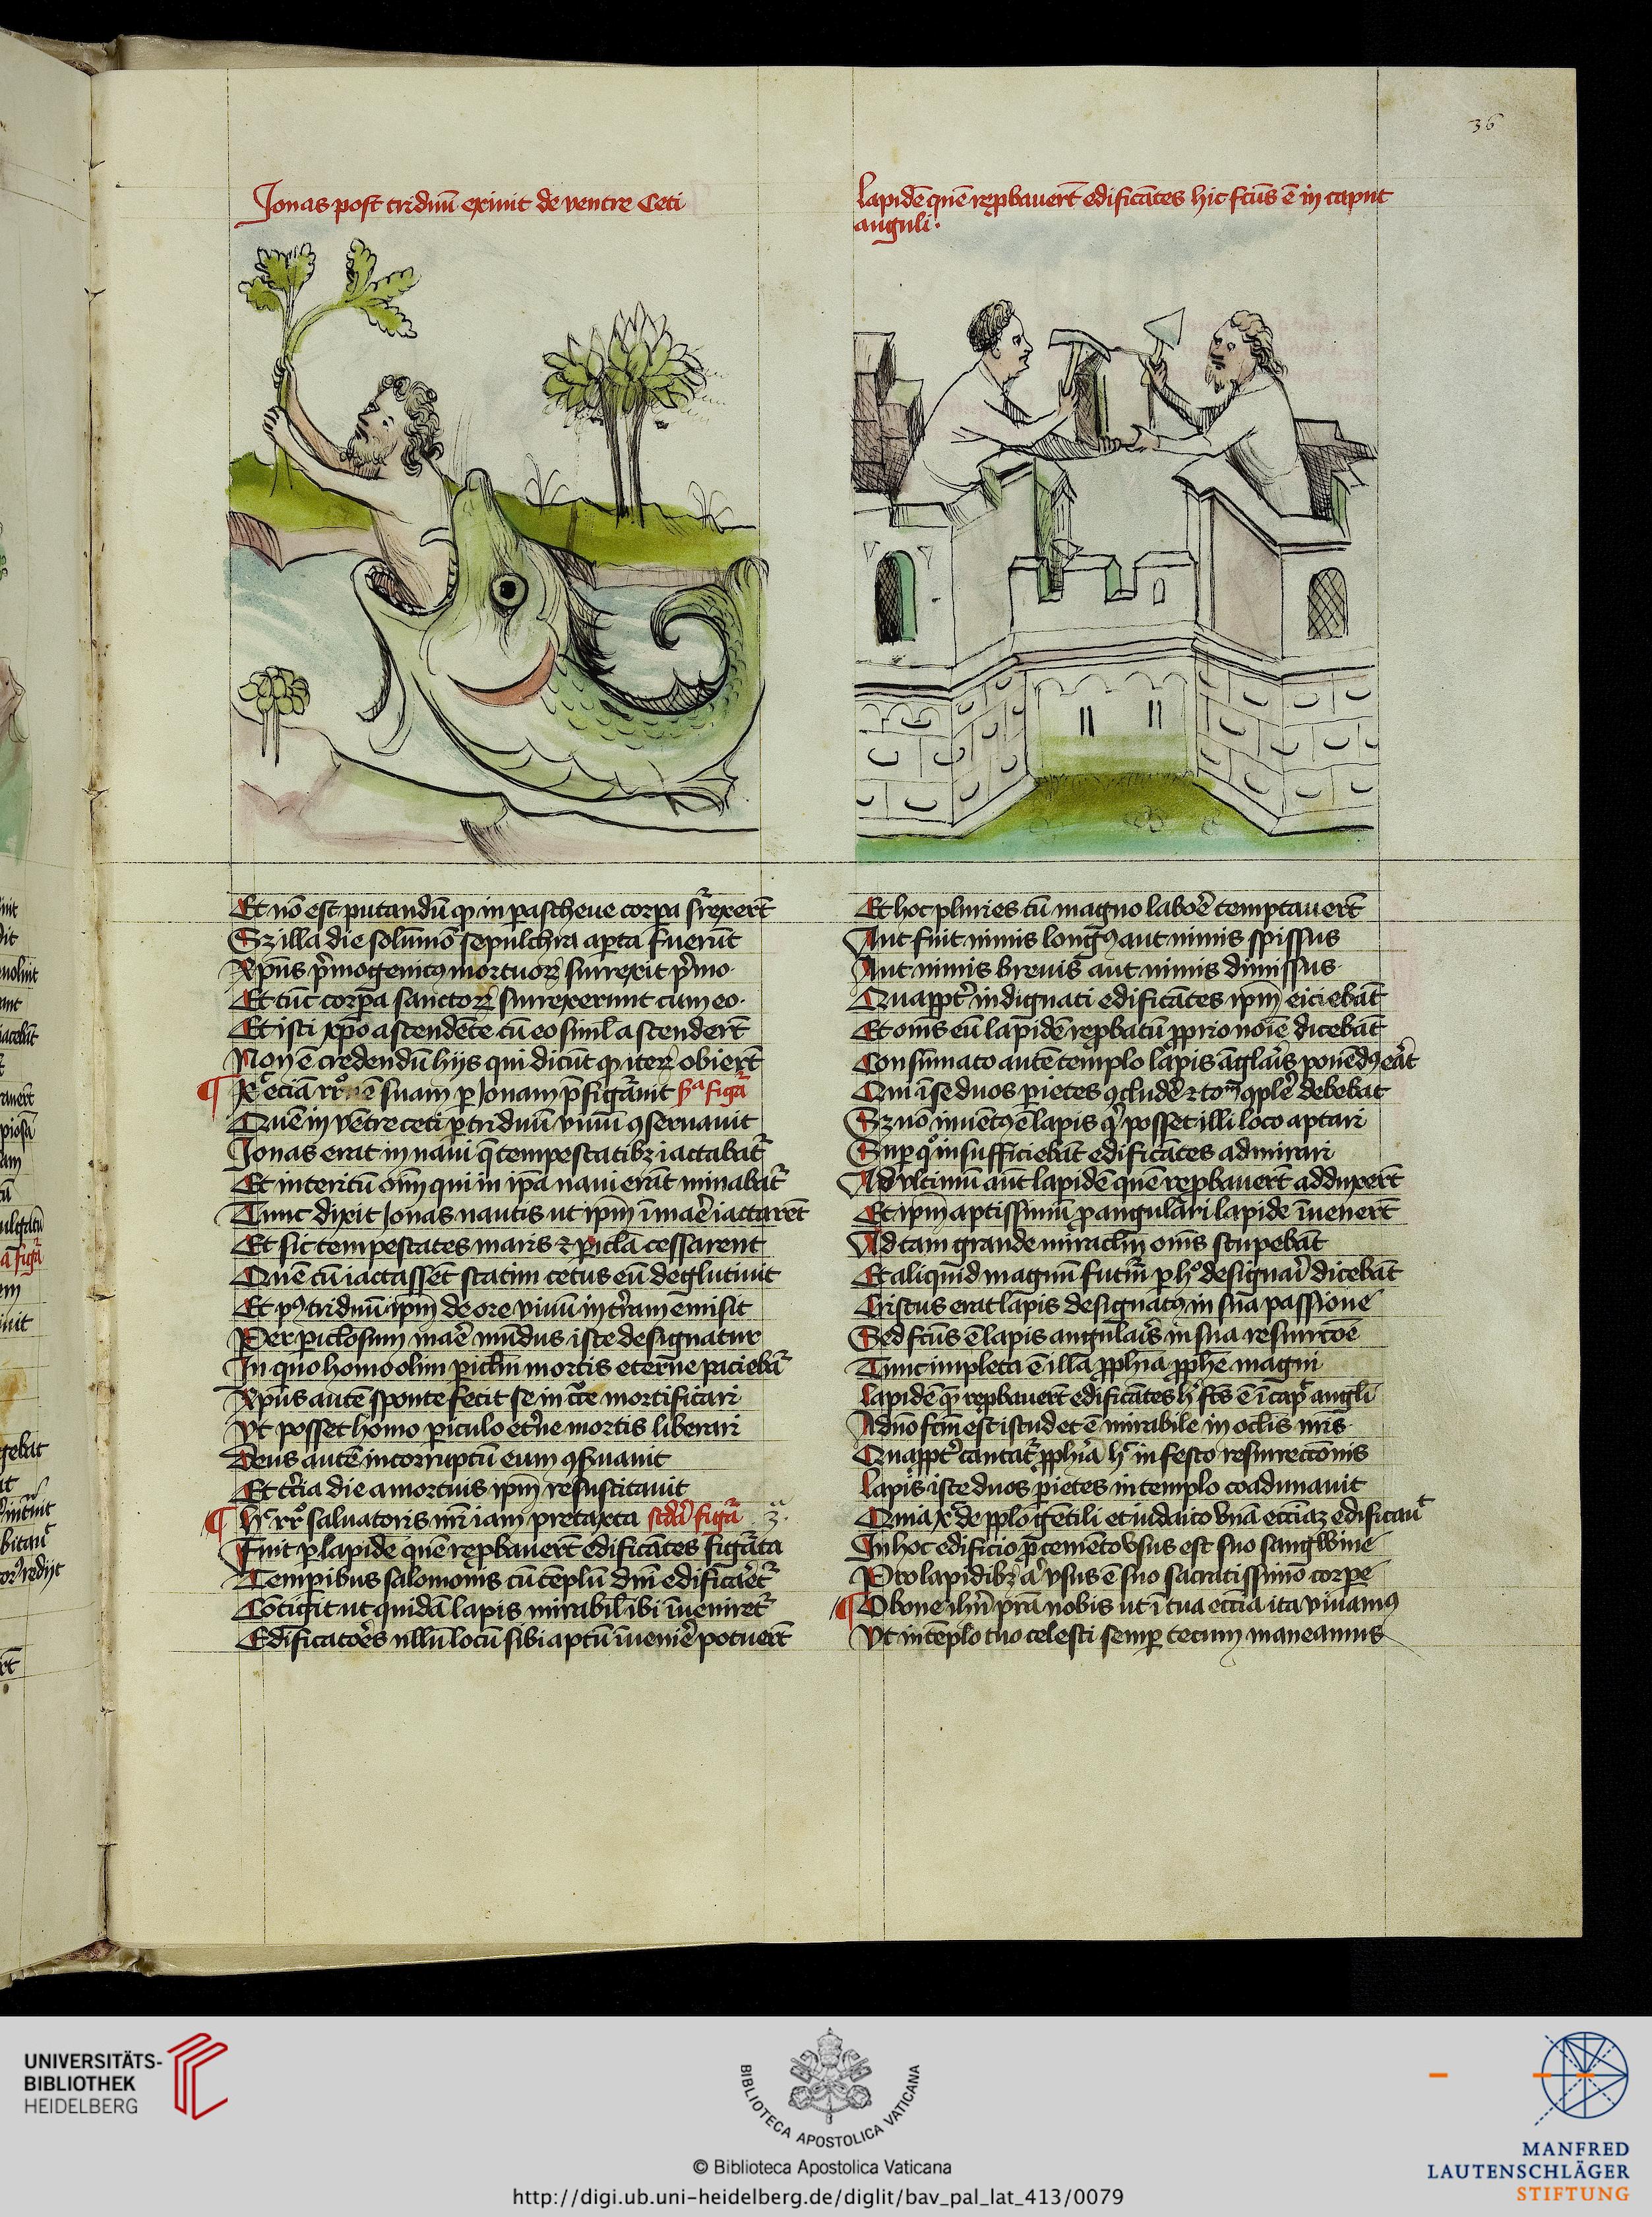 36
Jonas post triduū exiuit de ventre Ceti
Et nō est putandū ꝙ in pascheue corpa sʳrexerūt
Sʒ illa die solūmō sepulchra apta fuerūt
Xpūs pʳmogenitꝯ mortuoꝝ surrexit pʳmo
Et tūc corpa sanctoꝝ surrexerunt cum eo.
Et isti xpō ascendēte cū eo simˡ ascenderūt
Non ē credendū hijs qui dicūt ꝙ iteꝝ obierūt
¶ Xᶜ eciā rrº nē suam ꝑ Jonam p̄figʳauit pʳᵃ figʳa
Quē in vētre ceti ꝑ triduū viuū ꝯseruauit
Jonas erat in naui q̄ tempestatibʒ iactabatʳ
Et interitū oīm qui in ipā naui erāt minabatʳ
Tunc dixit Jonas nautis ut ipm̄ ī maʳe iactarēt
Et sic tempestates maris ⁊ ꝑicla cessarent
Quē cū iactassēt statim cetus eū deglutiuit
Et pꝯ triduū ipm̄ de ore viuū in tʳram emisit
Per ꝑiclosum maʳe mūdus iste designatur
In quo homo olim ꝑiclm̄ mortis eterne paciebatʳ
Xpūs autē sponte fecit se in cʳce mortificari
Vt posset homo ꝑiculo etʳne mortis liberari
Deus autē incorruptū eum ꝯseruauit
Et tʳcia die a mortuis ipm̄ resuscitauit
¶ Hᶜ rrº saluatoris nrī iam pretaxta scd̄a figʳa 3ᵃ
Fuit ꝑ lapide quē reꝓbauerūt edificātes figʳata
Tempibus salomonis cū tēplū dnī edificaʳetʳ
Cōtigit ut quidā lapis mirabilˡ ibi īueniretʳ
Edificatoʳes nllū locū sibi aptū īueniʳe potuerūt
Lapidē quē reꝓbauerūt edificātes hic fctūs ē in caput
anguli.
Et hoc pluries cū magno laboʳe temptauerūt
Aut fuit nimis longꝯ aut nimis spissus
Aut nimis breuis aut nimis dimissus
Quapptʳ indignati edificātes ipm̄ eiciebāt
Et oms̄ eū lapidē reꝓbatū ꝓprio noīe dicebāt
Consūmato autē templo lapis āglaʳis ponēdꝯ eʳat
Qui ī se duos ꝑietes ꝯcludeʳe ⁊ totᵐ ꝯpleʳe debebat
Sʒ nō inuētꝯ ē lapis qʳ posset illi loco aptari
Suꝑ qº insufficiebāt edificātes admirari
Ad vltimū aūt lapidē quē reꝓbauerūt adduxerūt
Et ipm̄ aptissimū ꝓ angulari lapide īuenerūt
Ad tam grande miraclm̄ oms̄ stupebāt
Et aliquid magnū futᵐ ꝑ hº designaʳi dicebāt
Cristus erat lapis designatꝯ in sua passione
Sed fctūs ē lapis angulaʳis in sua resurrcōe
Tunc impleta ē illa ꝓphia ꝓphe magni
Lapidē qʳ reꝓbauerūt edificātes hᶜ fctūs ē ī capᵗ angˡi
A dno fctm̄ est istud et ē mirabile in oclis nrīs
Quapptʳ cantatʳ ꝓphia hᶜ in festo resurrectōnis
Lapis iste duos ꝑietes in templo coadunauit
Quia xᶜ de pplo gētili et iudaico vnā ecciaꝫ edificauᵗ
In hoc edificio ꝓ cemēto vsus est suo sangwine
Pro lapidibʒ aʳ vsus ē suo sacratissimo corpe
¶ O bone ihū pʳsta nobis ut ī tua eccia ita viuamꝯ
Vt in tēplo tuo celesti semꝑ tecum maneamus
UNIVERSITÄTS-
BIBLIOTHEK
HEIDELBERG
BIBLIOTECA APOSTOLICA VATICANA
© Biblioteca Apostolica Vaticana
http://digi.ub.uni-heidelberg.de/diglit/bav_pal_lat_413/0079
MANFRED
LAUTENSCHLÄGER
STIFTUNG